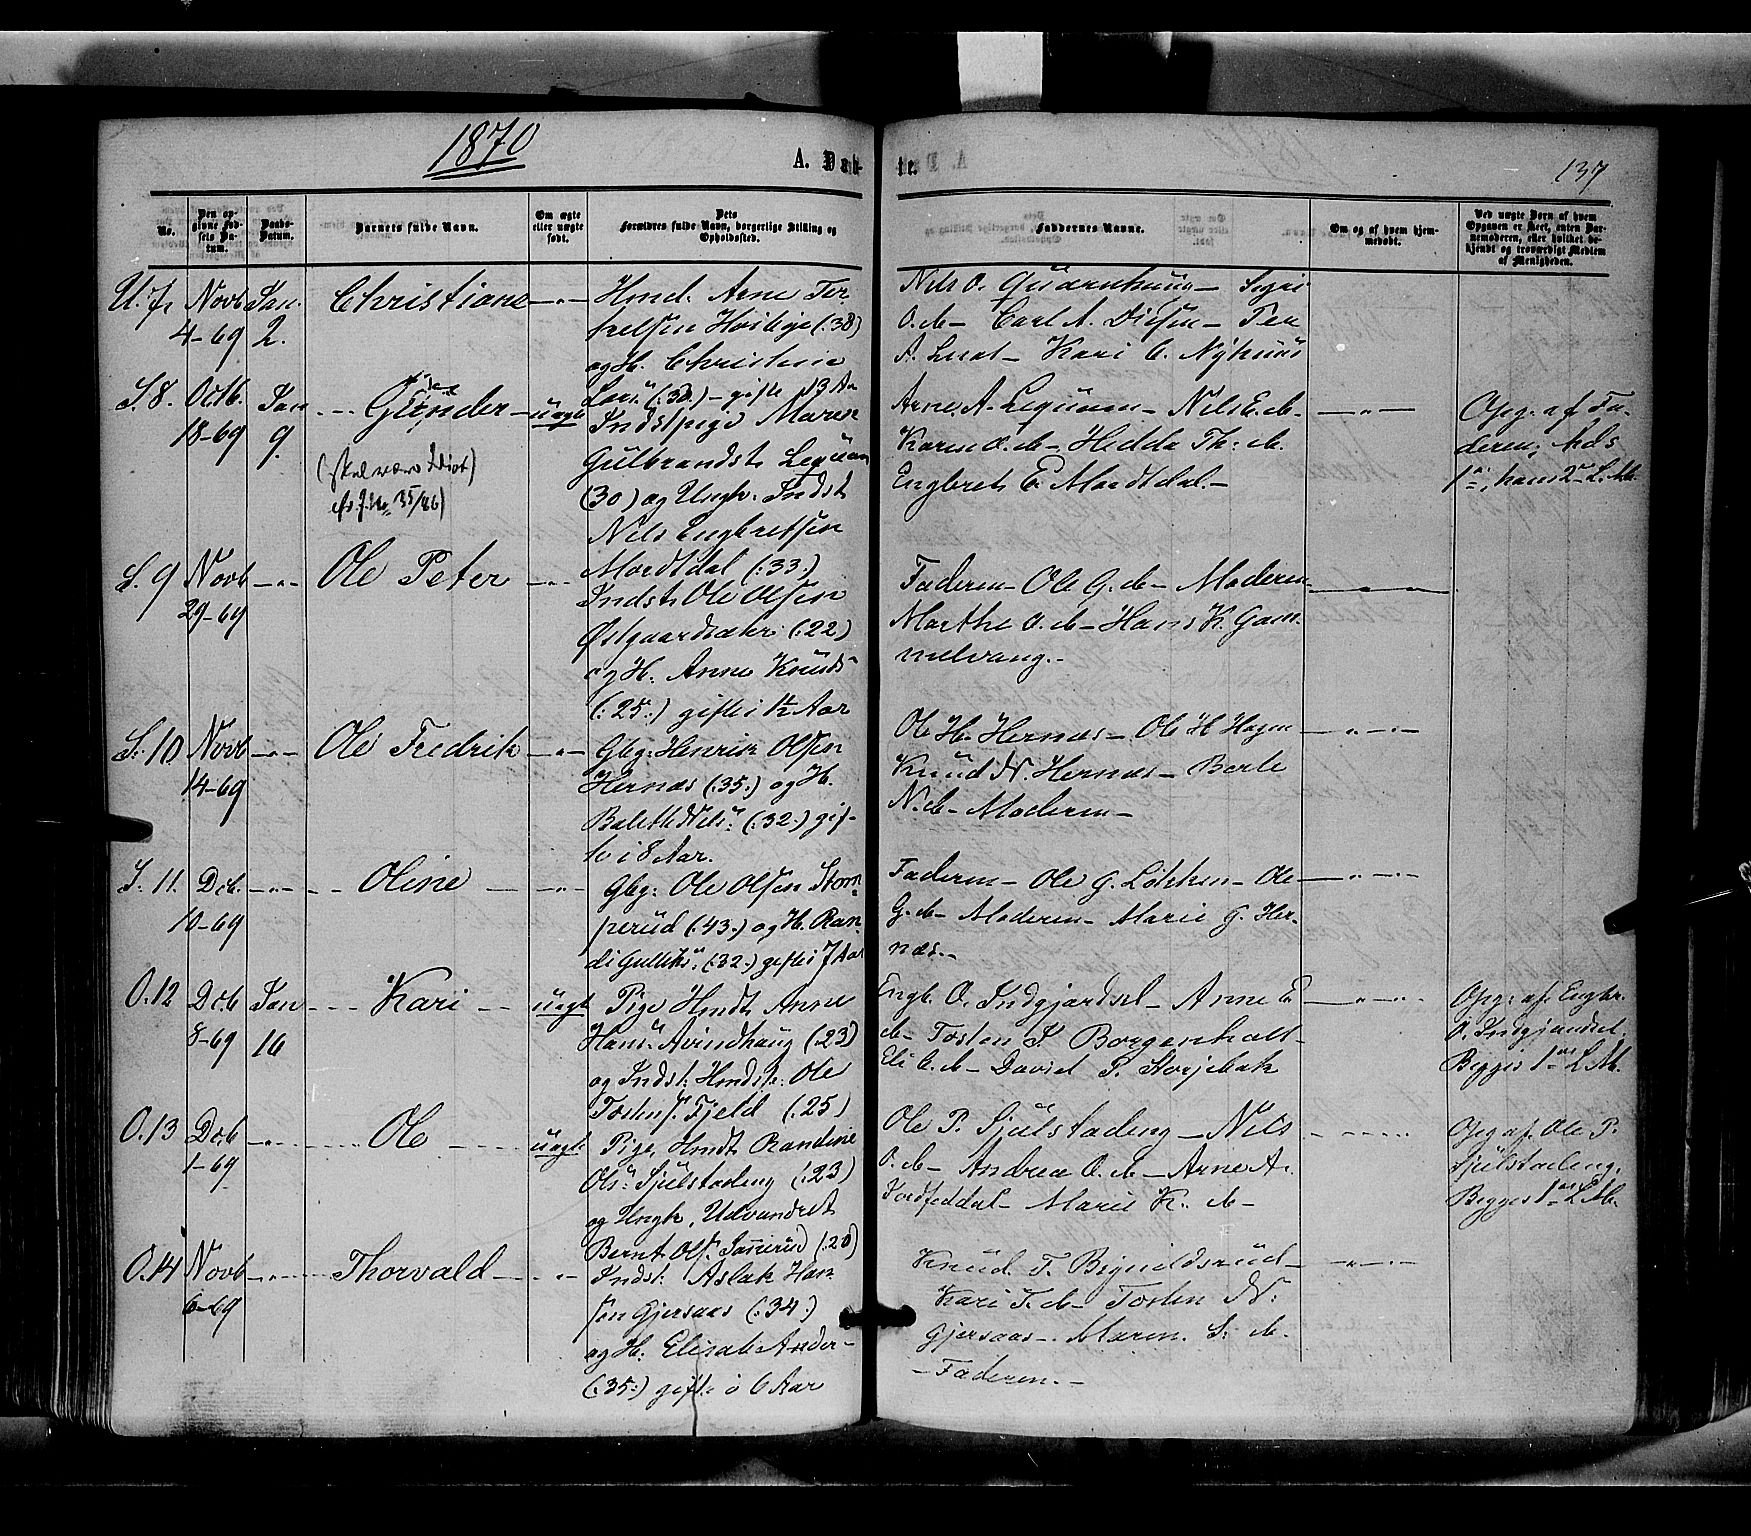 1870
A. Døbte.
137
No.
Den opgivne Fødsels Datum.
Daabs-Datum.
Barnets fulde Navn.
Om ægte eller uægte født.
Dets Forældres fulde Navn, borgerlige Stilling og Opholdssted.
Faddernes Navne.
Om og af hvem hjemmedøbt.
Ved uægte Børn af hvem Opgaven er skeet, enten Barnemoderen, eller hvilket bekjendt og troværdigt Medlem af Menigheden.
U. 7. Novb 4-69 Jan. 2. Christiane
Hmd. Arne Ter-
kelsen (:38)
og H. Christine
Lars: (:30:) - gifte 13 Aar
Nils O. Quarnhuus - Sigri
O. db - Carl A. Diesen - Per
A. Lund - Kari C. Nyhuus
S. 8. Octb. 18-69 Jan 9. Gunder uægte
(skal være Idiot)
35/86)
Indst pige Maren
Gulbrandsd:
(30) og Ungk. Indst
Nils Engbretsen
Mordtdal (:33:)
Arne A. - Nils E. db -
Karen O. db - Hedda Th: db
Engbret E. Mordtdal. -
Opg. af Fa-
deren; hds
1ste, hans 2det L.M.
S. 9 Novb 29-69 Ole Peter
Indst: Ole Olsen
Østgaardsæter (:22)
og H. Anne Knuds
(:25:) gifte i 1½ Aar
Faderen - Ole G. db - Moderen
Marthe O. db - Hans K. Gam-
melvang. -
S. 10 Novb 14-69 Ole Fredrik
Gbg: Henrik Olsen
Hernæs (:35:) og H.
Nils: (:32:) gif-
te i 8 Aar.
Ole H. Hernæs - Ole H Hagen
Knud N. Hernæs - Berte
N. db - Moderen -
S. 11. Dcb. 10-69 Oline
Gbg: Ole Olsen Stom-
perud (:43:) og H. Ran-
di Gulliks: (:32:) gifte i 7 Aar
Faderen - Ole G. Løkken - Ole
G. db - Moderen - Marie G. Her-
næs. -
O. 12 Dcb 8-69 Jan 16 Kari uægte
Pige Hmdt Anne
Hans: (:23)
og Indst: Hmdst: Ole
Tostens. Fjeld (:25)
Engb. O. Indgjærdset - Anne E
db - Tosten S. Borgenholt -
Eli C. db - David P. Storjebak
Opg: af Engbr.
O. Indgjærdset.
Begges 1ste L.M.
O. 13 Dcb 1-69 Ole uægt
Pige, Hmdt Randine
Ols: Sjulstadeng (:23)
og Ungk, Udvandret
Bernt Ols. (:20)
Ole P. Sjulstadeng - Nils
O. db - Andrea O. db - Arne A.
- Marie K. db -
Opg af Ole P.
Sjulstadeng.
Begges 1ste L.M.
O. 14 Novb 6-69 Thorvald
Indst: Aslak Han-
sen Gjersaas (:34:)
og H: Elisab: Ander-
(:35:) gifte i 6 Aar
Knud T. Bignildsrud -
Kari T. db - Tosten N:
Gjersaas - Maren S: db -
- Faderen. -